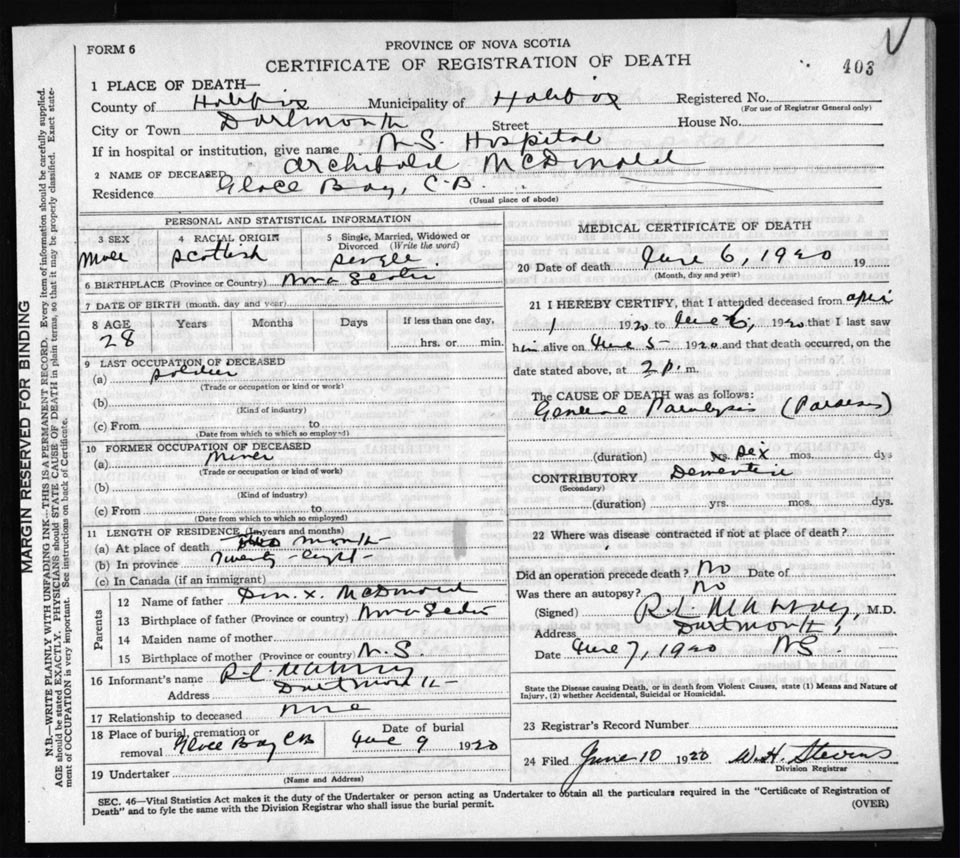 FORM 6
PROVINCE OF NOVA SCOTIA
CERTIFICATE OF REGISTRATION OF DEATH
403
1 PLACE OF DEATH—
County of Halifax Municipality of Halifax Registered No.
(For use of Registrar General only)
City or Town Dartmouth Street House No.
If in hospital or institution, give name N.S. Hospital
2 NAME OF DECEASED Archibald McDonald
Residence Glace Bay, C.B.
(Usual place of abode)
PERSONAL AND STATISTICAL INFORMATION
3 SEX
4 RACIAL ORIGIN
5 Single, Married, Widowed or Divorced (Write the word)
Male Scottish Single
6 BIRTHPLACE (Province or Country) Nova Scotia
7 DATE OF BIRTH (month, day and year)
8 AGE Years Months Days If less than one day,
28 hrs. or min.
9 LAST OCCUPATION OF DECEASED
(a) Soldier
(Trade or occupation or kind or work)
(b)
(Kind of industry)
(c) From to
(Date from which to which so employed)
10 FORMER OCCUPATION OF DECEASED
(a) Miner
(Trade or occupation or kind of work)
(b)
(Kind of industry)
(c) From to
(Date from which to which so employed)
11 LENGTH OF RESIDENCE (In years and months)
(a) At place of death two month
(b) In province Twenty-eight-
(c) In Canada (if an immigrant)
Parents
12 Name of father Dan. X. McDonald
13 Birthplace of father (Province or country) Nova Scotia
14 Maiden name of mother
15 Birthplace of mother (Province or country) N.S.
16 Informant's name R.L.
Address Dartmouth
17 Relationship to deceased None
18 Place of burial, cremation or removal Glace Bay CB
Date of burial
June 9 1920
19 Undertaker
(Name and Address)
MEDICAL CERTIFICATE OF DEATH
20 Date of death June 6, 1920 19
(Month, day and year)
21 I HEREBY CERTIFY, that I attended deceased from April
1 1920 to June 6, 1920 that I last saw
him alive on June 5- 1920 and that death occurred, on the
date stated above, at 2 p.m.
The CAUSE OF DEATH was as follows:
General Paralysis (Paresis)
(duration) yrs. Six mos. dys
CONTRIBUTORY Dementia
(Secondary)
(duration) yrs. mos. dys.
22 Where was disease contracted if not at place of death?
Did an operation precede death? No Date of
Was there an autopsy? No
(Signed) R.L. M.D.
Address Dartmouth,
Date June 7, 1920 NS.
State the Disease causing Death, or in death from Violent Causes, state (1) Means and Nature of
Injury, (2) whether Accidental, Suicidal or Homicidal.
23 Registrar's Record Number
24 Filed June 10 1920 W.H. Stevens
Division Registrar
SEC. 46—Vital Statistics Act makes it the duty of the Undertaker or person acting as Undertaker to obtain all the particulars required in the "Certificate of Registration of
Death" and to fyle the same with the Division Registrar who shall issue the burial permit.
(OVER)
MARGIN RESERVED FOR BINDING
N.B.—WRITE PLAINLY WITH UNFADING INK—THIS IS A PERMANENT RECORD. Every item of information should be carefully supplied.
AGE should be stated EXACTLY. PHYSICIANS should STATE CAUSE OF DEATH in plain terms, so that it may be properly classified. Exact state-
ment of OCCUPATION is very important. See instructions on back of Certificate.